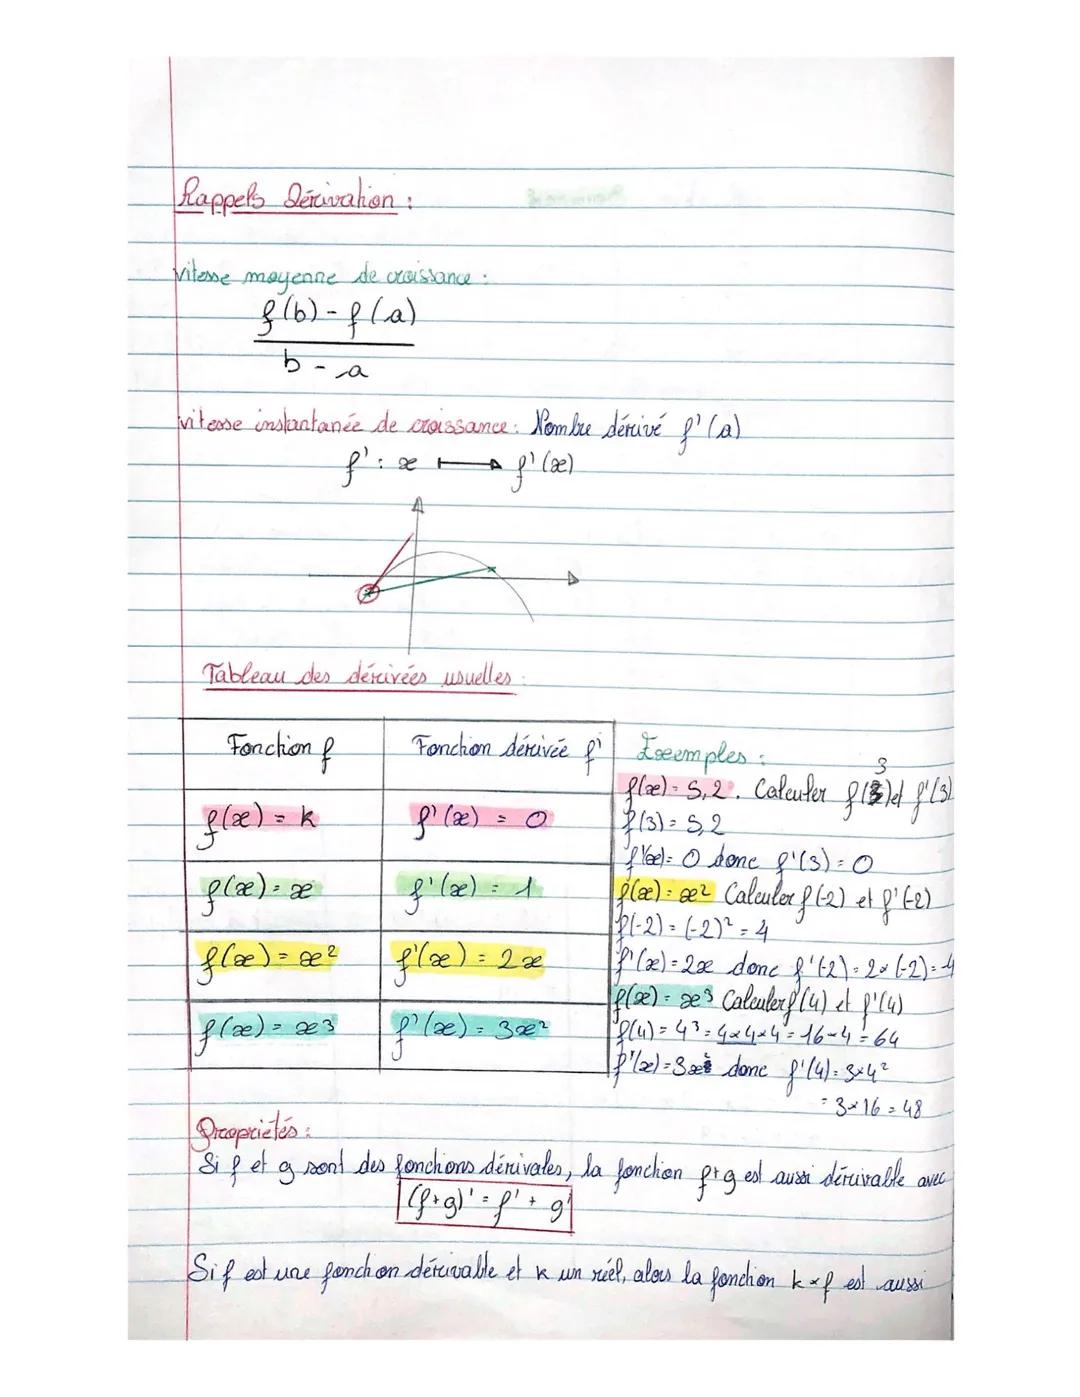 Rappels Dérivation :
vitesse moyenne de croissance :
f(b) - f(a)
b - a
vitesse instantanée de croissance : Nombre dérivé f'(a)
f' : x ⟼ f'(x)
Tableau des dérivées usuelles :
Fonction f
Fonction dérivée f'
f(x) = k
f'(x) = 0
f(x) = x
f'(x) = 1
f(x) = x²
f'(x) = 2x
f(x) = x3
f'(x) = 3x²
Exemples :
f(x) = 5,2. Calculer f(3) et f'(3)
f(3) = 5,2
f'(x) = 0 donc f'(3) = 0
f(x) = x² Calculer f(-2) et f'(-2)
f(-2) = (-2)² = 4
f'(x) = 2x donc f'(-2) = 2×(-2) = -4
f(x) = x³ Calculer f(4) et f'(4)
f(4) = 4³ = 4×4×4 = 16×4 = 64
f'(x) = 3x² donc f'(4) = 3×4²
= 3×16 = 48
Propriétés :
Si f et g sont des fonctions dérivales, la fonction f+g est aussi dérivable avec
(f+g)' = f' + g'
Si f est une fonction dérivable et k un réel, alors la fonction k×f est aussi